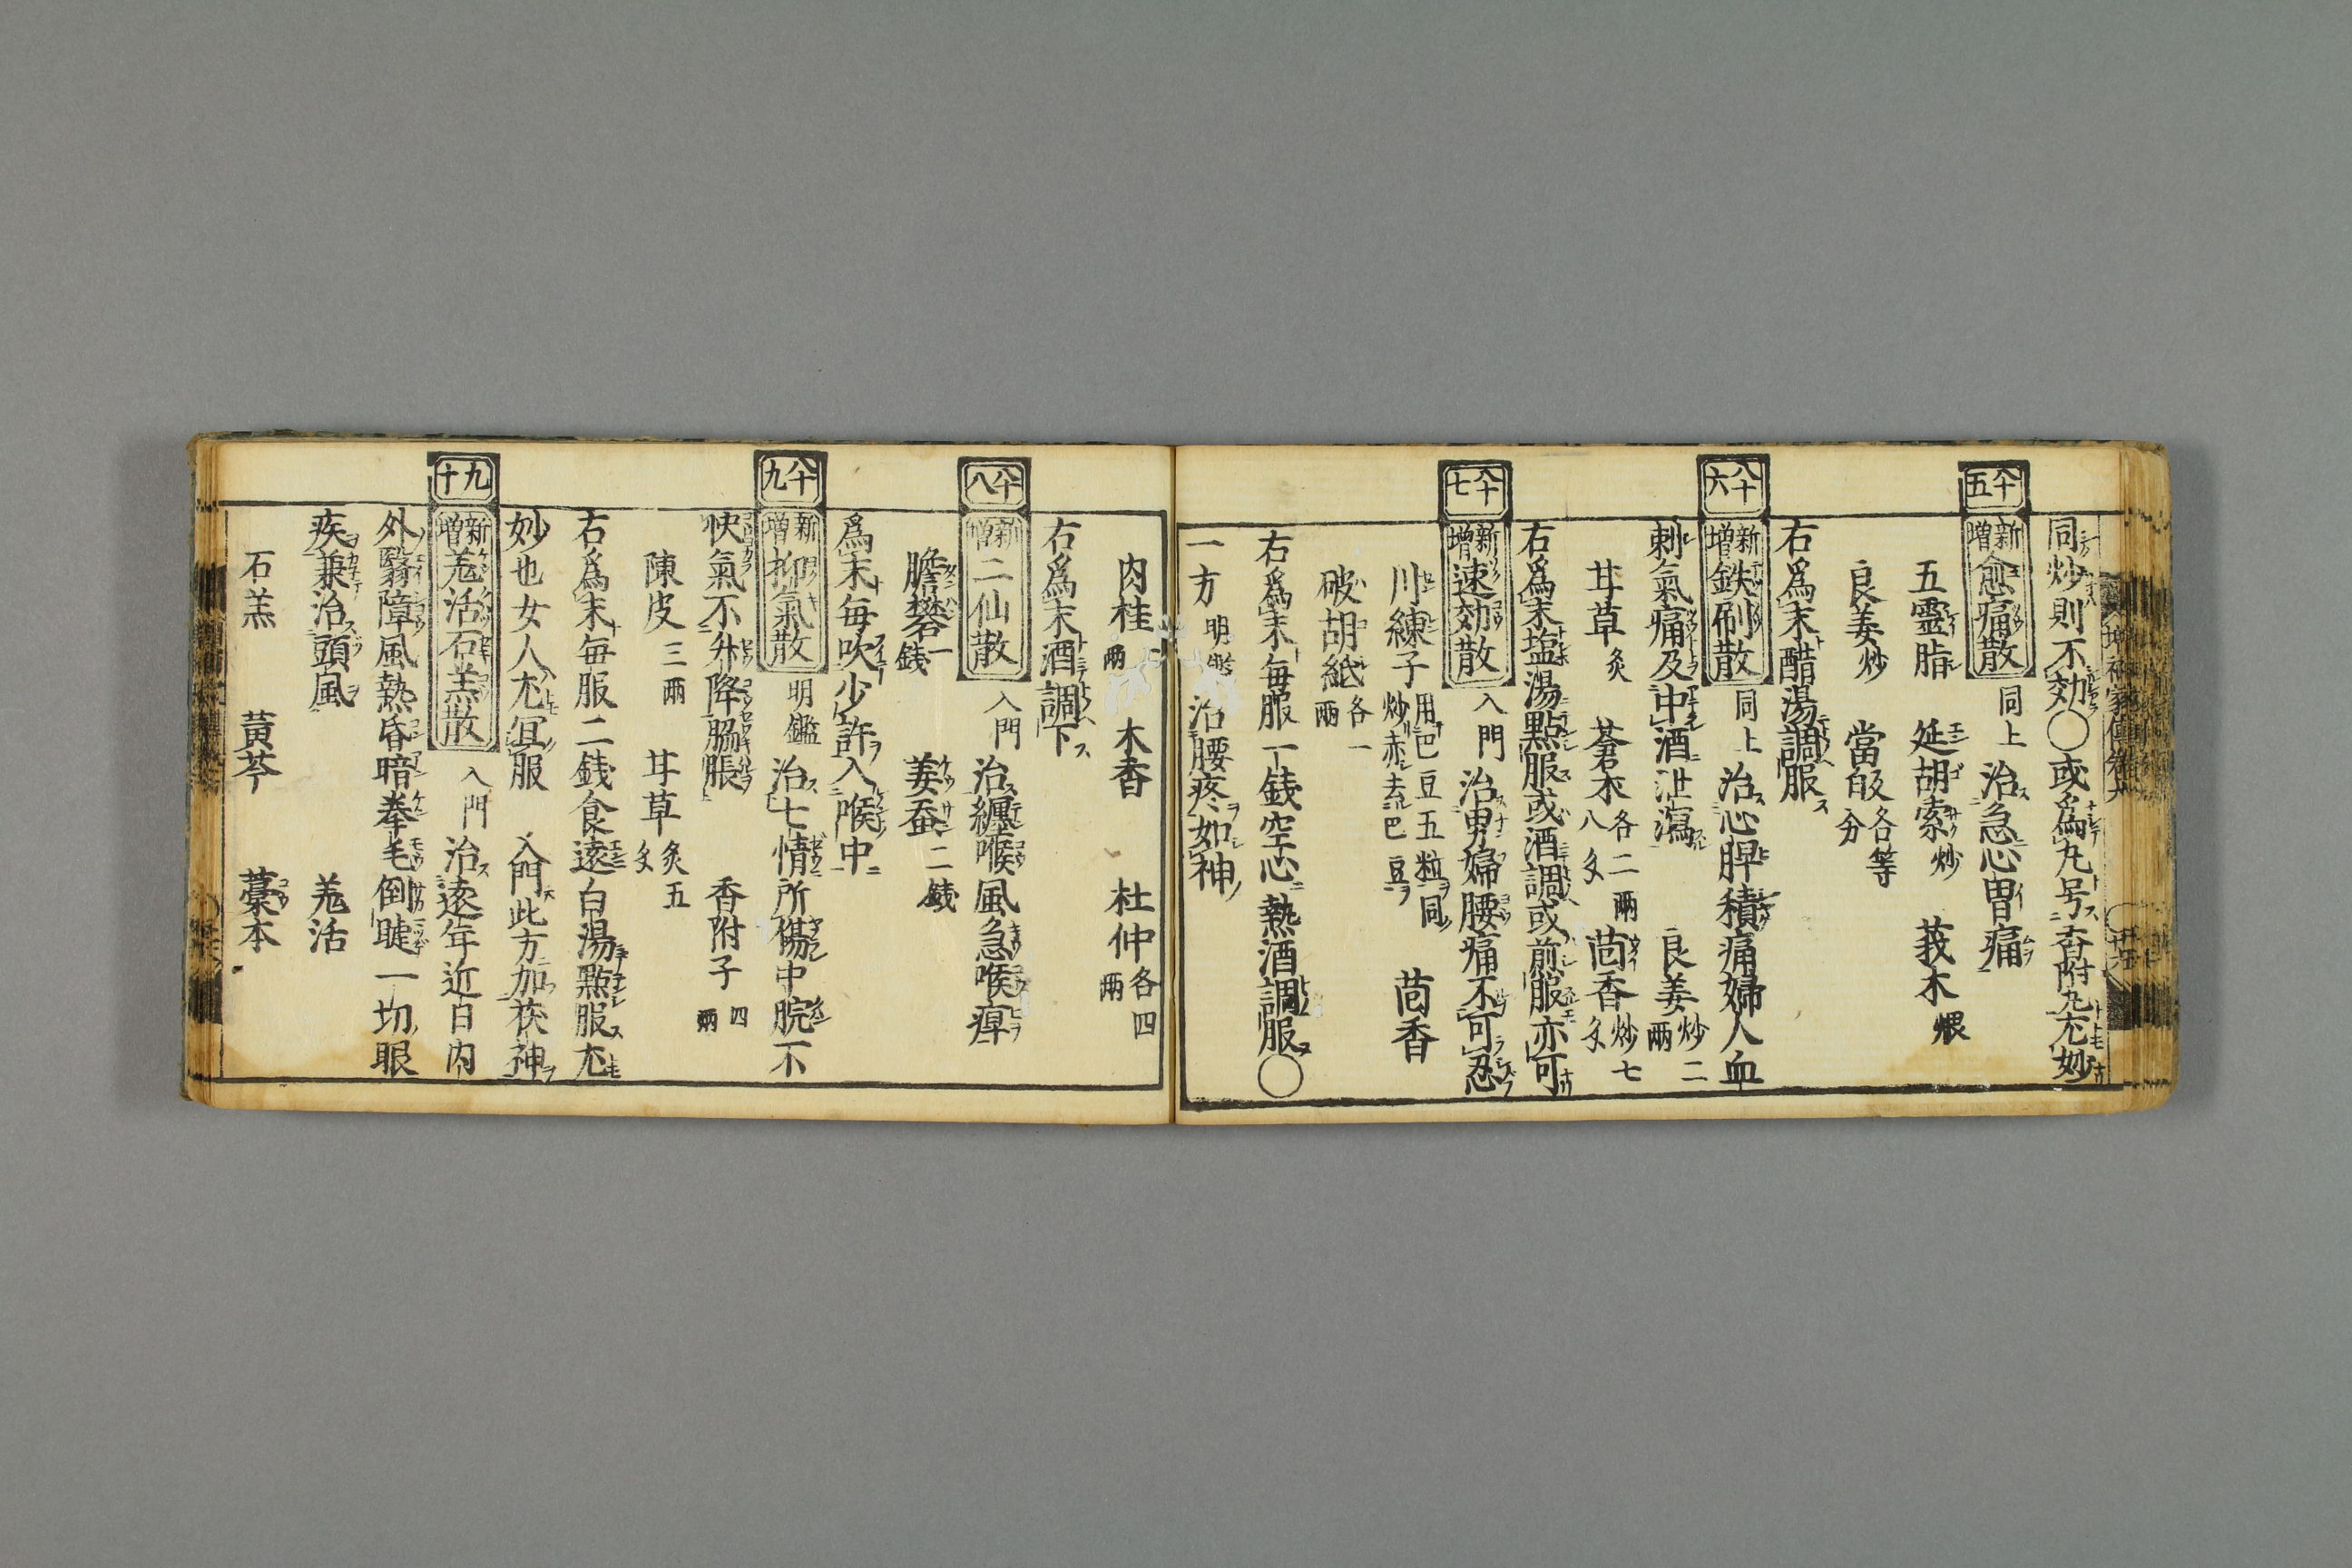 同炒則不効〇或為丸号香附丸尤妙
八十五
新増 愈痛散 同上 治急心胃痛
五霊脂 延胡索炒 莪朮煨
良姜炒 當皈各等分
右為末醋湯調服
八十六
新増 鉄刷散 同上 治心脾積痛婦人血
刺氣痛及中酒泄瀉 良姜炒二両
甘草炙 蒼朮各二両八戔 茴香炒七戔
右為末塩湯點服或酒調或煎服亦可
八十七
新増 速効散 入門 治男婦腰痛不可忍
川練子用巴豆五粒同炒赤去巴豆 茴香
破胡紙各一両
右為末毎服一銭空心熱酒調服〇
一方 明鑑 治腰疼如神
肉桂二両 木香 杜仲各四両
右為末酒調下
八十八
新増 二仙散 入門 治纏喉風急喉痺
膽礬一銭 姜蚕二銭
為末毎吹少許入喉中
八十九
新増 抑氣散 明鑑 治七情所傷中脘不
快氣不升降脇脹 香附子四両
陳皮三両 甘草炙五戔
右為末毎服二銭食遠白湯點服尤
妙也女人尤宜服 入門此方加茯神
九十
新増 羗活石羔散 入門 治遠年近日内
外翳障風熱昏暗拳毛倒睫一切眼
疾兼治頭風 羗活
石羔 黄芩 藁本